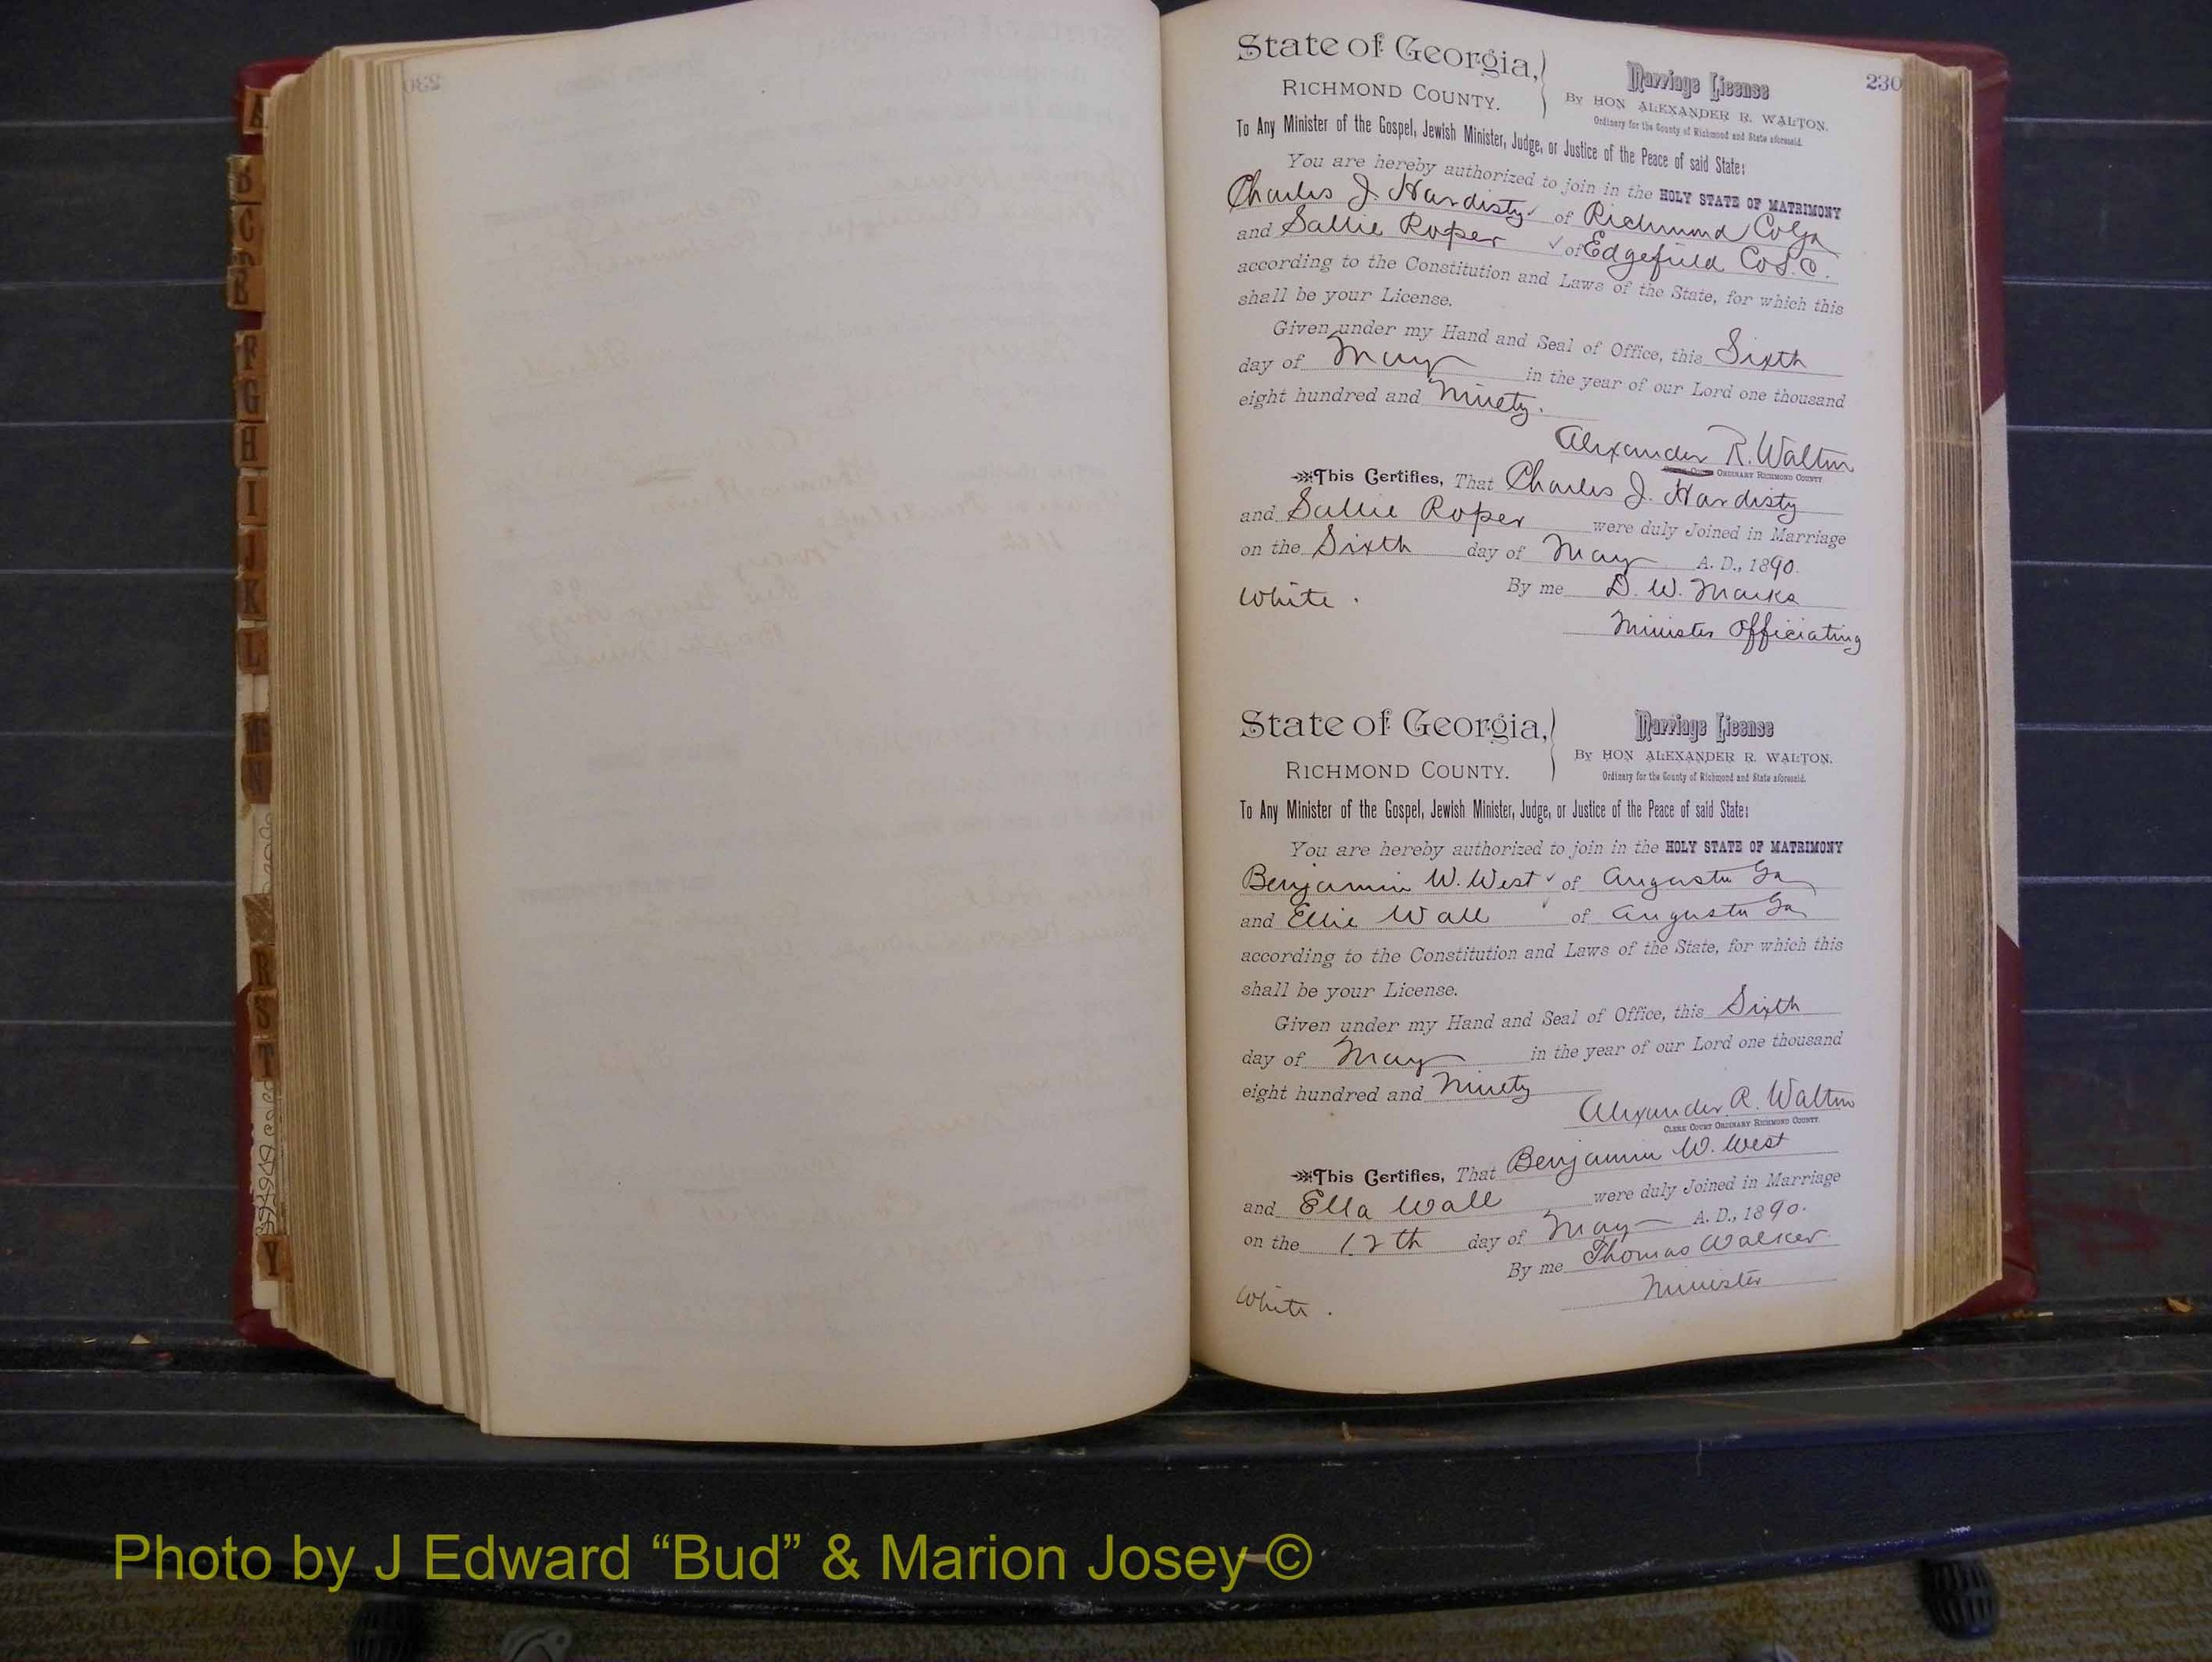 230
State of Georgia,
RICHMOND COUNTY.
Marriage License
BY HON ALEXANDER R. WALTON.
Ordinary for the County of Richmond and State aforesaid.
To Any Minister of the Gospel, Jewish Minister, Judge, or Justice of the Peace of said State:
You are hereby authorized to join in the HOLY STATE OF MATRIMONY
Charles J. Hardisty of Richmond Co Ga
and Sallie Roper of Edgefield Co S.C.
according to the Constitution and Laws of the State, for which this
shall be your License.
Given under my Hand and Seal of Office, this Sixth
day of May in the year of our Lord one thousand
eight hundred and Ninety.
Alexander R. Walton
ORDINARY RICHMOND COUNTY
This Certifies, That Charles J. Hardisty
and Sallie Roper were duly Joined in Marriage
on the Sixth day of May A. D., 1890.
By me D. W. Marks
White.
Minister Officiating
State of Georgia,
RICHMOND COUNTY.
Marriage License
BY HON ALEXANDER R. WALTON.
Ordinary for the County of Richmond and State aforesaid.
To Any Minister of the Gospel, Jewish Minister, Judge, or Justice of the Peace of said State:
You are hereby authorized to join in the HOLY STATE OF MATRIMONY
Benjamin W. West of Augusta Ga
and Ellie Wall of Augusta Ga
according to the Constitution and Laws of the State, for which this
shall be your License.
Given under my Hand and Seal of Office, this Sixth
day of May in the year of our Lord one thousand
eight hundred and Ninety
Alexander R. Walton
CLERK COURT ORDINARY RICHMOND COUNTY.
This Certifies, That Benjamin W. West
and Ella Wall were duly Joined in Marriage
on the 12th day of May A. D., 1890.
By me Thomas Walker
Minister
White.
A
B
C
F
G
H
I
J
K
L
M
N
R
S
T
Y
Photo by J Edward “Bud” & Marion Josey ©